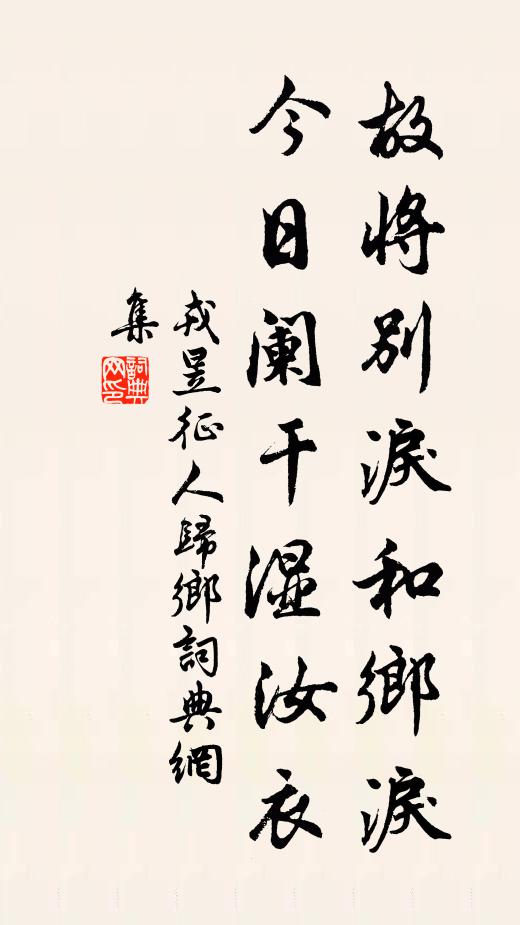 故將別淚和鄉淚
今日阑干湿汝衣
戎昱征人歸鄉詞典網
集
詞典網印